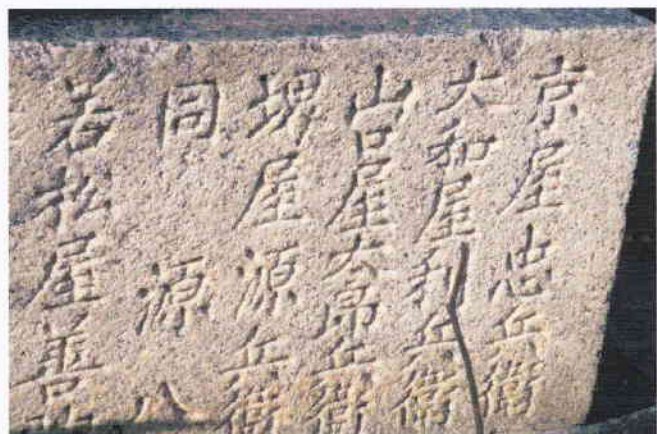 京屋忠兵衛
大和屋利兵衛
山口屋太郎兵衛
堺屋源兵衛
同 源八
若松屋善